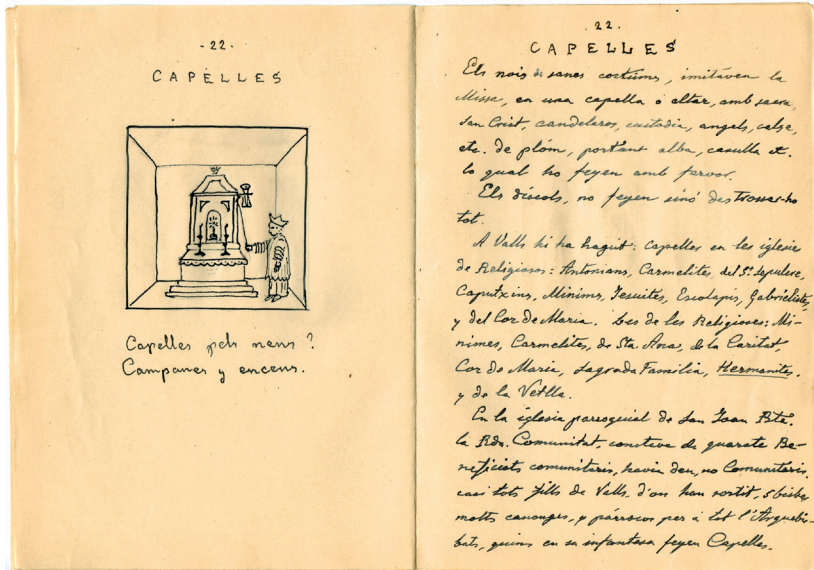 - 22.
CAPELLES
Capelles pels nens?
Campanes y encens.
. 22.
CAPELLES
Els nois de sanes costums, imitaven la
Missa, en una capella ó altar, amb sacra,
San Crist, candeleros, custodia, angels, calze,
etc. de plóm, portant alba, casulla etc.
lo qual ho feyen amb fervor.
Els díscols, no feyen sinó destrossar-ho
tot.
A Valls hi ha hagut: capelles en les iglesies
de Religiosos: Antonians, Carmelites, del St. Sepulcre,
Caputxins, Minims, Jesuites, Escolapis, Gabrielistes,
y del Cor de Maria. Les de les Religioses: Mi-
nimes, Carmelites, de Sta. Ana, de la Caritat,
Cor de Maria, Sagrada Familia, Hermanites.
y de la Vetlla.
En la iglesia parroquial de San Joan Bta.
la Rdn. Comunitat, constava de quaranta Be-
neficiats comunitaris, havia deu, no Comunitaris.
casi tots fills de Valls. d'on han sortit, 5 bisbes,
molts canonges, y párrocos per á tot l'Arquebis-
bats, quins en sa infantesa feyen Capelles.